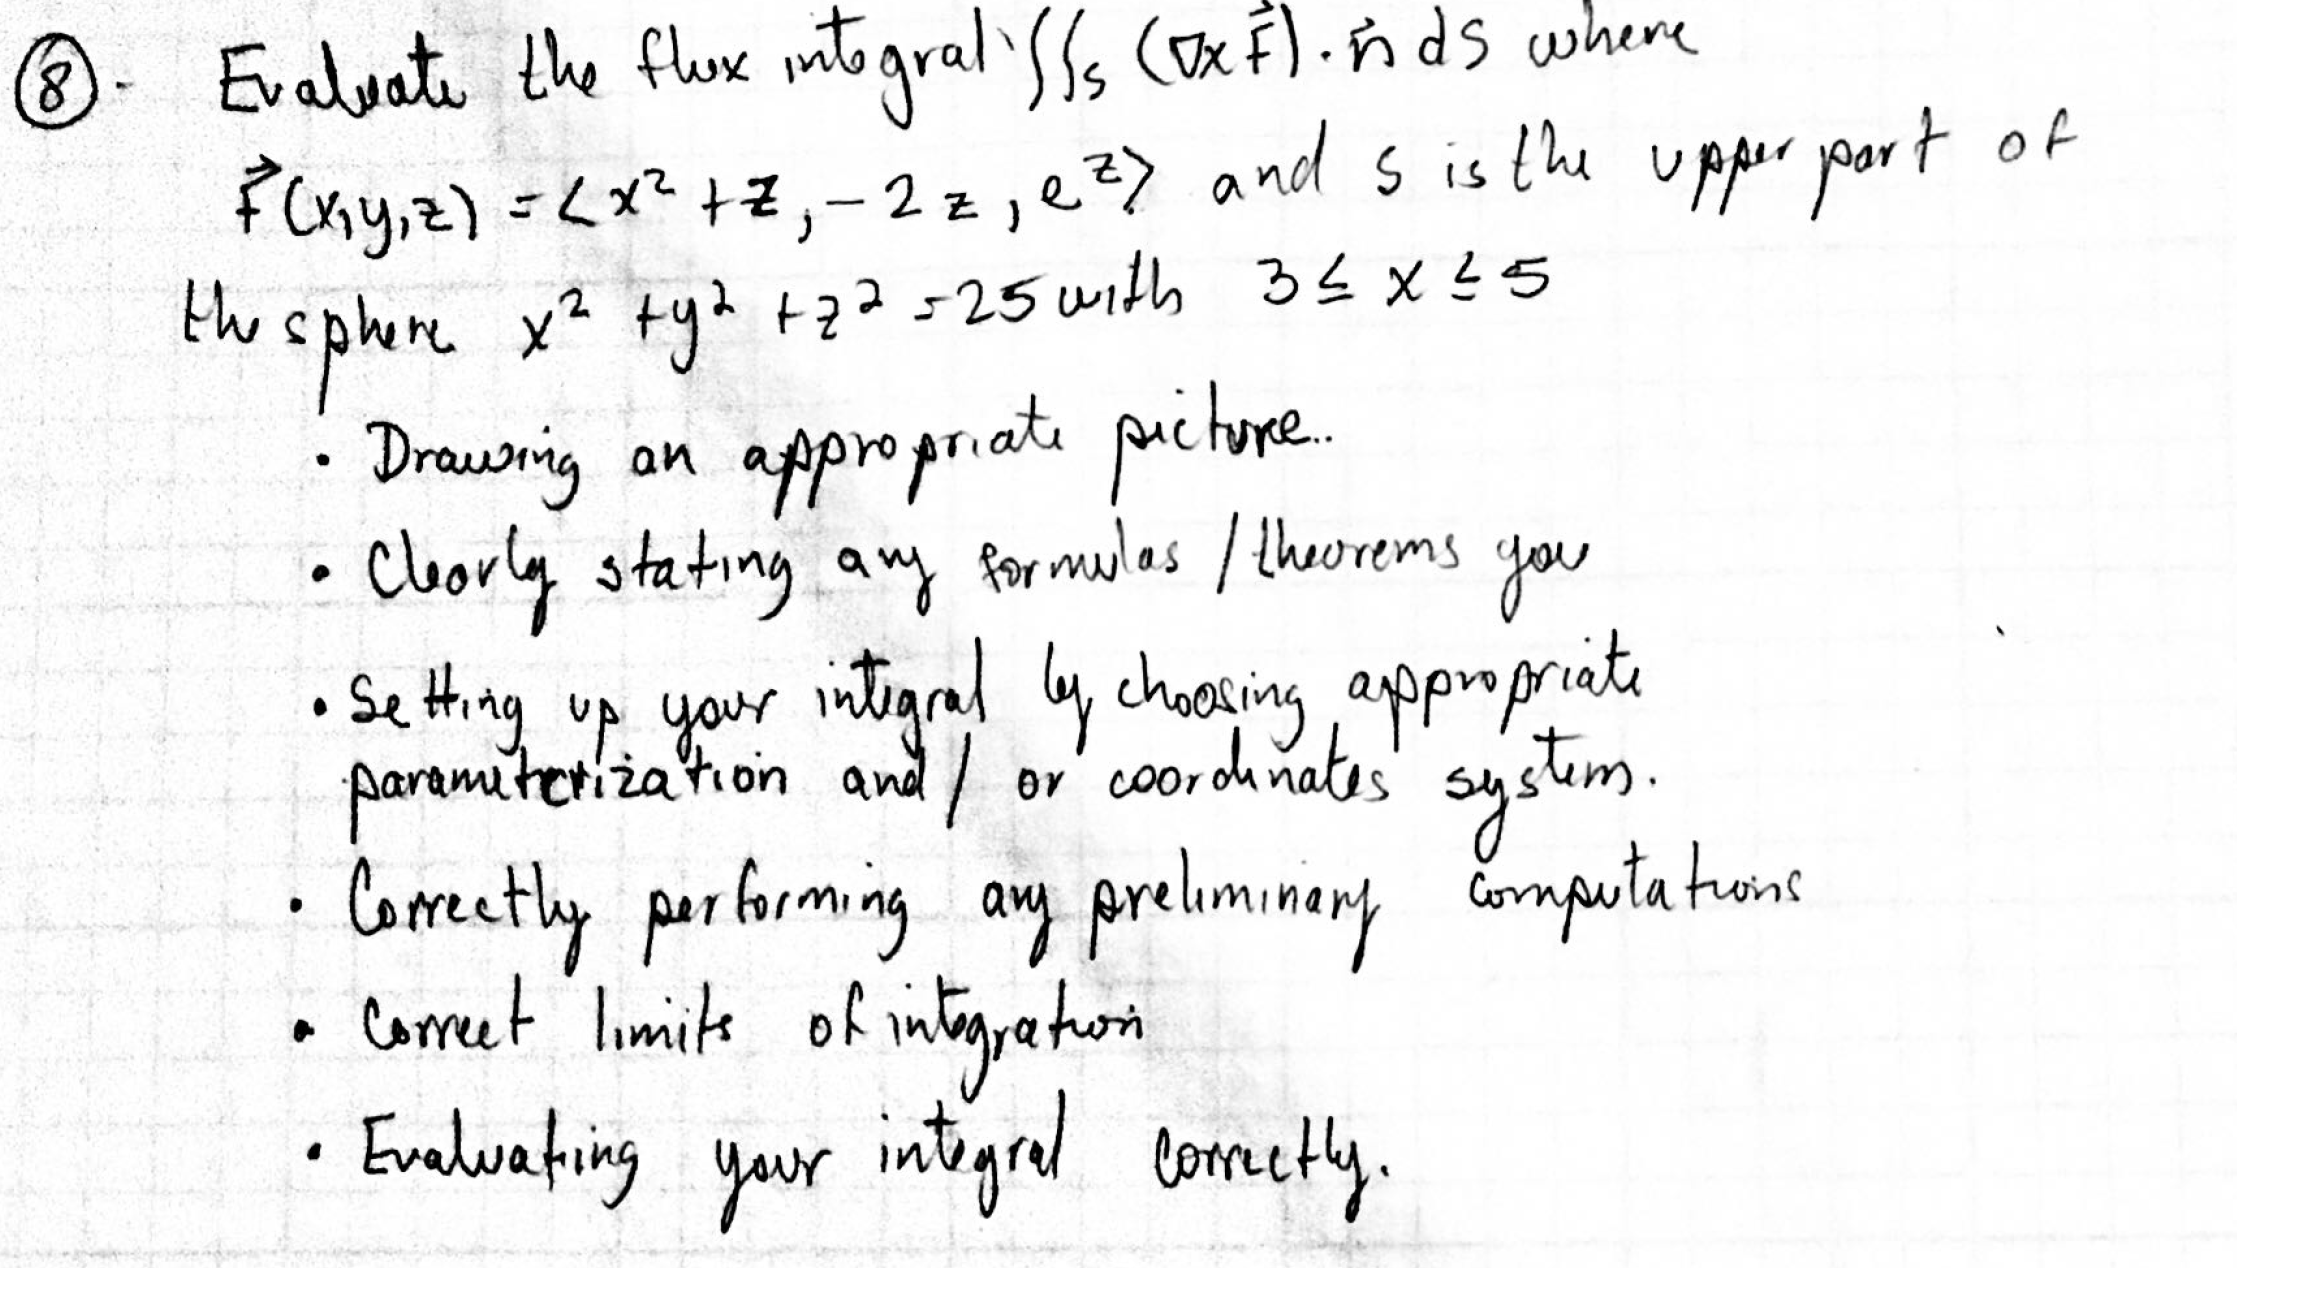 ⑧. Evaluate the flux integral ∬_S (∇×F⃗)·n⃗ dS where
F⃗(x,y,z) = <x² + z, -2z, e^z> and S is the upper part of
the sphere x² + y² + z² = 25 with 3 ≤ x ≤ 5
• Drawing an appropriate picture..
• Clearly stating any formulas / theorems you
• Setting up your integral by choosing appropriate
parameterization and / or coordinates system.
• Correctly performing any preliminary computations
• Correct limits of integration
• Evaluating your integral correctly.